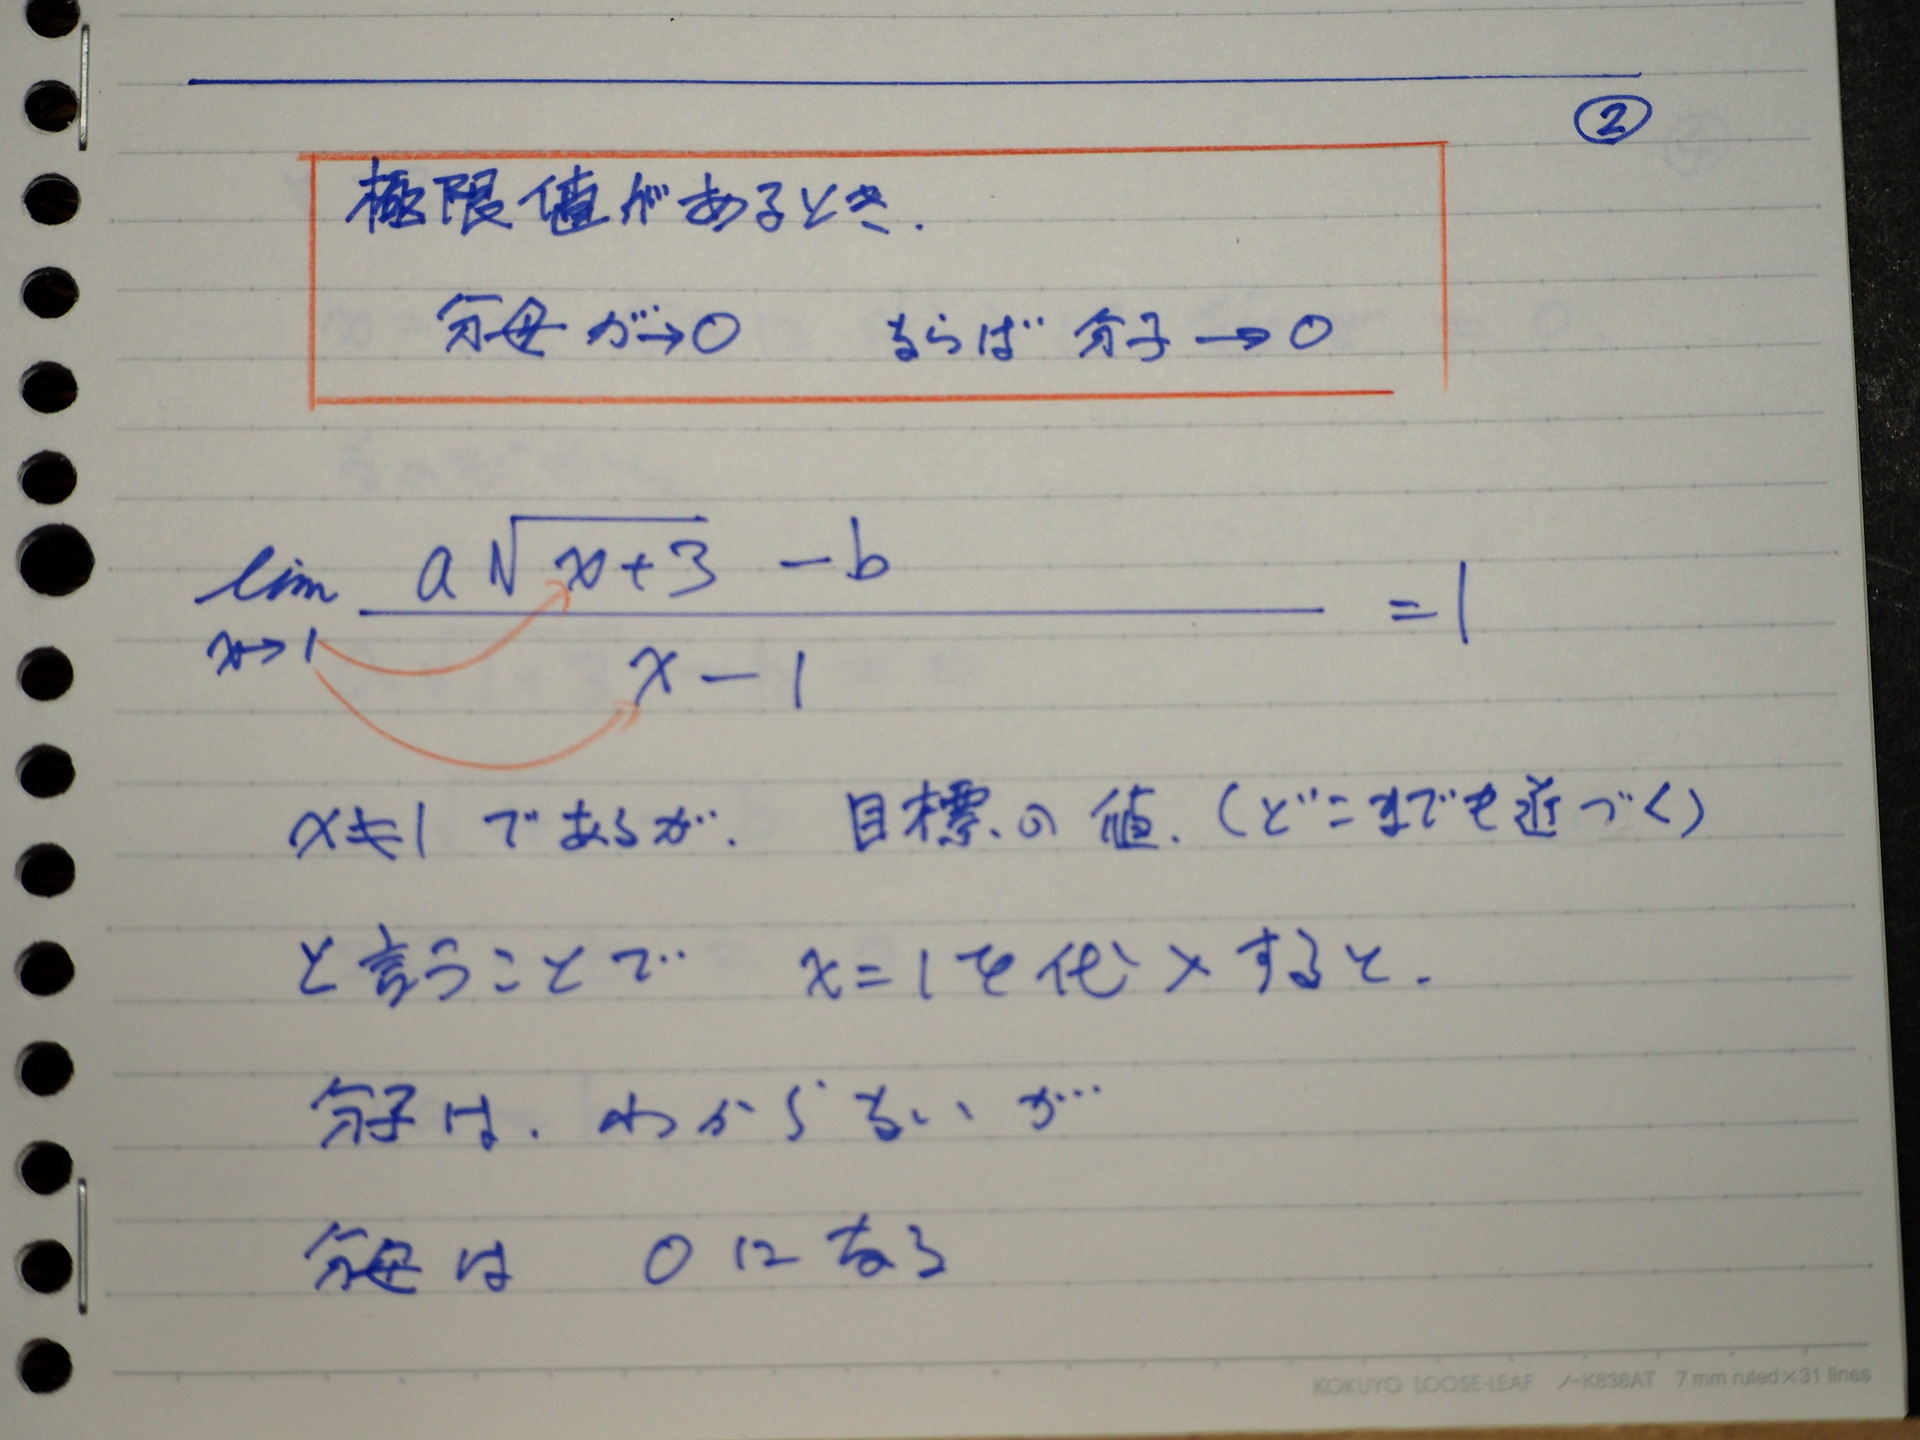 ②
極限値があるとき.
分母が→0 ならば 分子→0
lim x→1 (a√(x+3) - b)/(x - 1) = 1
x≠1 であるが. 目標の値.(どこまでも近づく)
と言うことで x=1を代入すると.
分子は. わからないが…
分母は 0になる
KOKUYO LOOSE-LEAF ノ-K836AT 7 mm ruled×31 lines